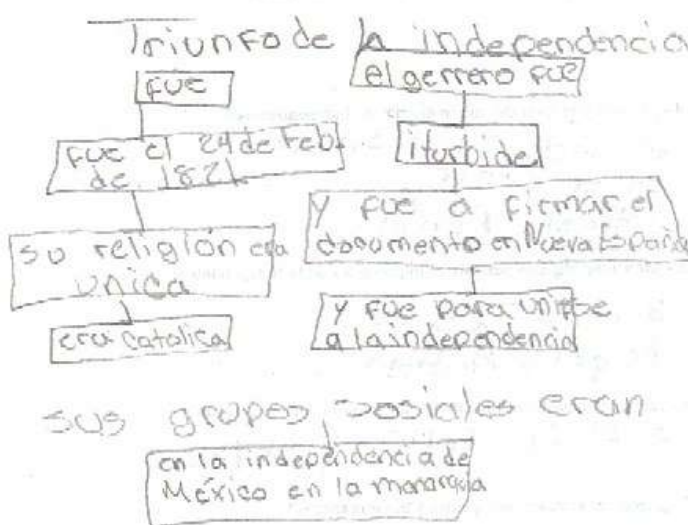 Triunfo de la independencia
fue
fue el 24 de Feb.
de 1821
su religión era
unica
era catolica
el gerrero fue
iturbide
y fue a firmar el
documento en Nueva España
y fue para unirse
a la independencia
sus grupos sosiales eran
en la independencia de
México en la monarquia